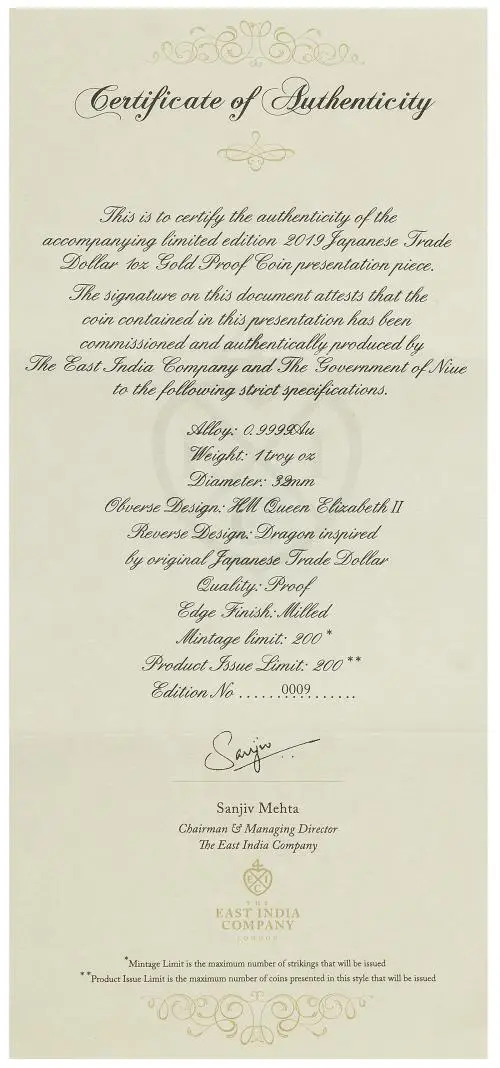 Certificate of Authenticity
This is to certify the authenticity of the
accompanying limited edition 2019 Japanese Trade
Dollar 1oz Gold Proof Coin presentation piece.
The signature on this document attests that the
coin contained in this presentation has been
commissioned and authentically produced by
The East India Company and The Government of Niue
to the following strict specifications.
Alloy: 0.9999Au
Weight: 1 troy oz
Diameter: 32mm
Obverse Design: HM Queen Elizabeth II
Reverse Design: Dragon inspired
by original Japanese Trade Dollar
Quality: Proof
Edge Finish: Milled
Mintage limit: 200 *
Product Issue Limit: 200 **
Edition No ......0009.......
Sanjiv
Sanjiv Mehta
Chairman & Managing Director
The East India Company
4
E I
C
THE
EAST INDIA
COMPANY
LONDON
*Mintage Limit is the maximum number of strikings that will be issued
**Product Issue Limit is the maximum number of coins presented in this style that will be issued